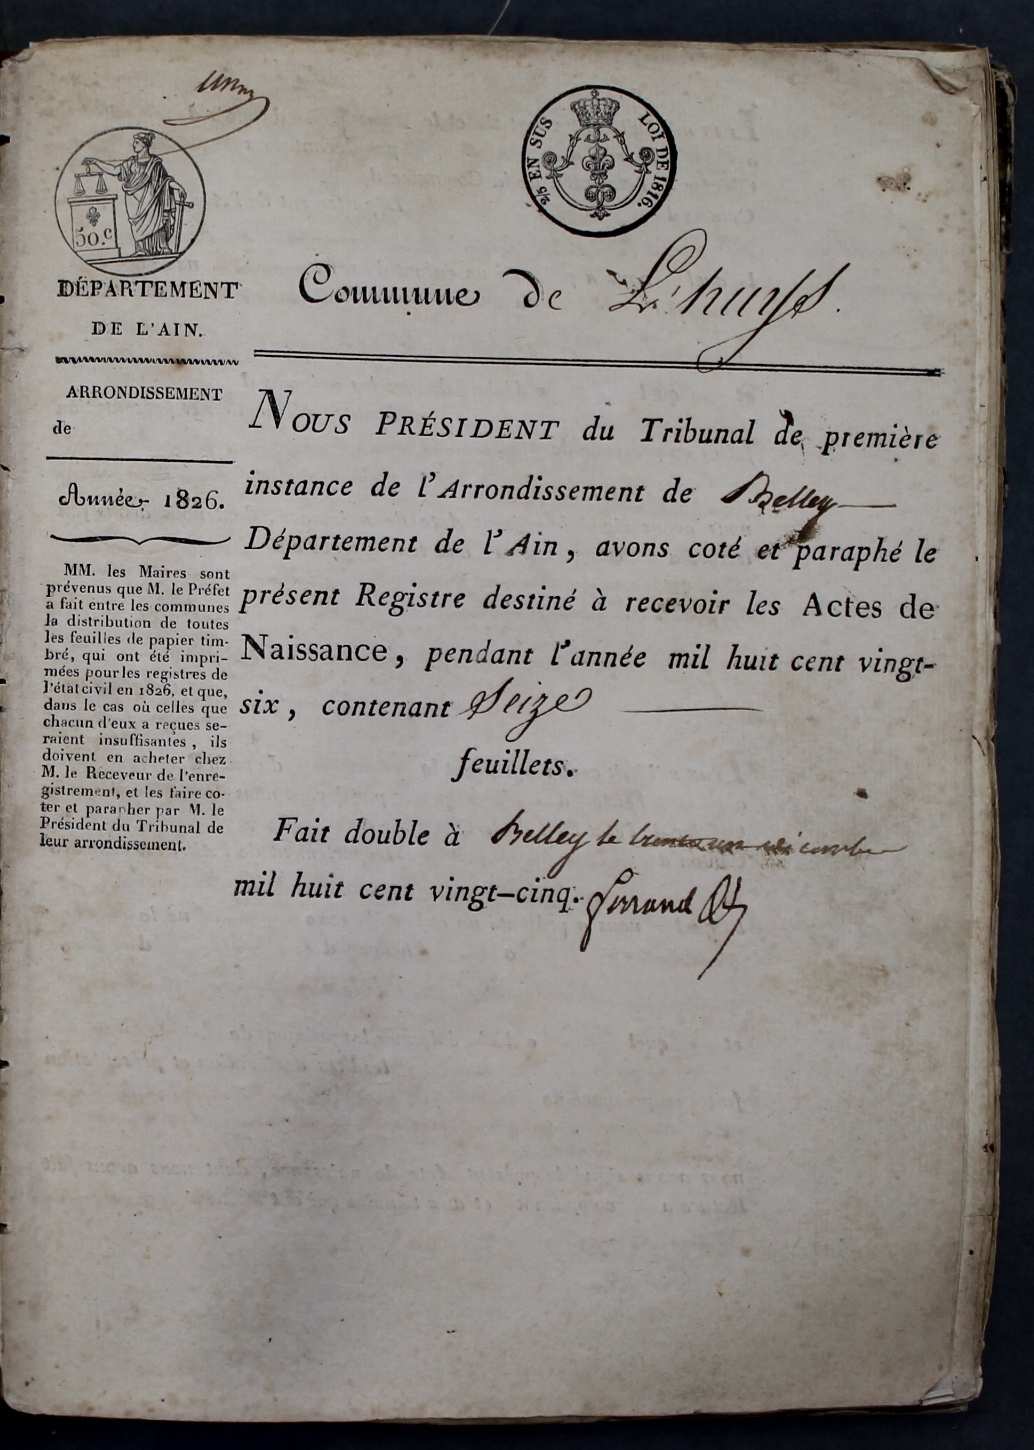 2/5 EN SUS LOI DE 1816.
50.c
DÉPARTEMENT
DE L'AIN.
Commune de Lhuys.
ARRONDISSEMENT
de
Année 1826.
MM. les Maires sont
prévenus que M. le Préfet
a fait entre les communes
la distribution de toutes
les feuilles de papier tim-
bré, qui ont été impri-
mées pour les registres de
l'état civil en 1826, et que,
dans le cas où celles que
chacun d'eux a reçues se-
raient insuffisantes, ils
doivent en acheter chez
M. le Receveur de l'enre-
gistrement, et les faire co-
ter et parapher par M. le
Président du Tribunal de
leur arrondissement.
NOUS PRÉSIDENT du Tribunal de première
instance de l'Arrondissement de Belley
Département de l'Ain, avons coté et paraphé le
présent Registre destiné à recevoir les Actes de
Naissance, pendant l'année mil huit cent vingt-
six, contenant Seize
feuillets.
Fait double à Belley le trente un décembre
mil huit cent vingt-cinq.